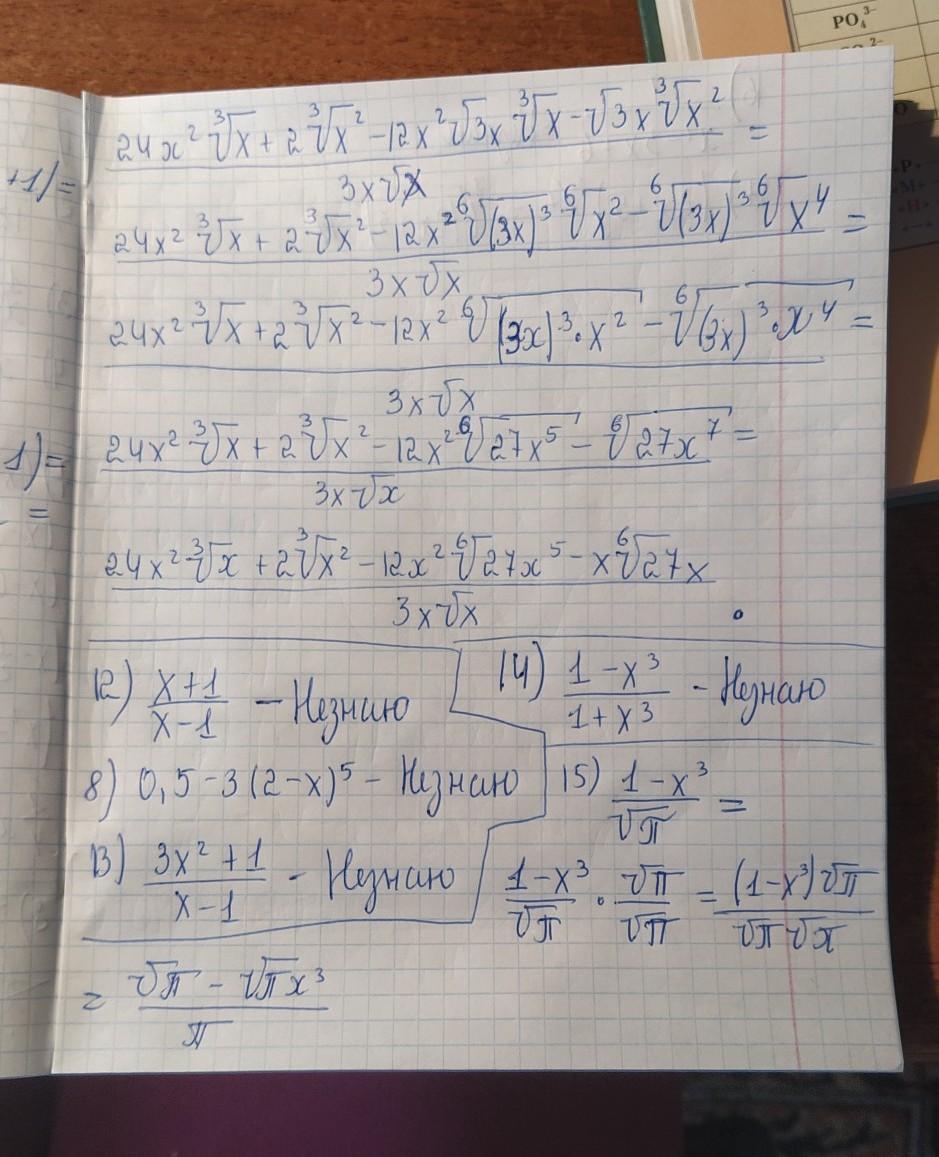 PO₄³⁻
=(1+
24x² ∛x + 2∛x² - 12x² √3x ∛x - √3x ∛x² =
3x√x
24x² ∛x + 2∛x² - 12x² ⁶√(3x)³ ⁶√x² - ⁶√(3x)³ ⁶√x⁴ =
3x√x
24x² ∛x + 2∛x² - 12x² ⁶√(3x)³·x² - ⁶√(3x)³·x⁴ =
3x√x
1)=
24x² ∛x + 2∛x² - 12x² ⁶√27x⁵ - ⁶√27x⁷ =
3x√x
=
24x² ∛x + 2∛x² - 12x² ⁶√27x⁵ - x ⁶√27x
3x√x
12) (x+1)/(x-1) - Незнаю
14) (1-x³)/(1+x³) - Незнаю
8) 0,5-3(2-x)⁵ - Незнаю
15) (1-x³)/√π =
13) (3x²+1)/(x-1) - Незнаю
(1-x³)/√π · √π/√π = (1-x³)√π/(√π√π)
= (√π - √πx³)/π